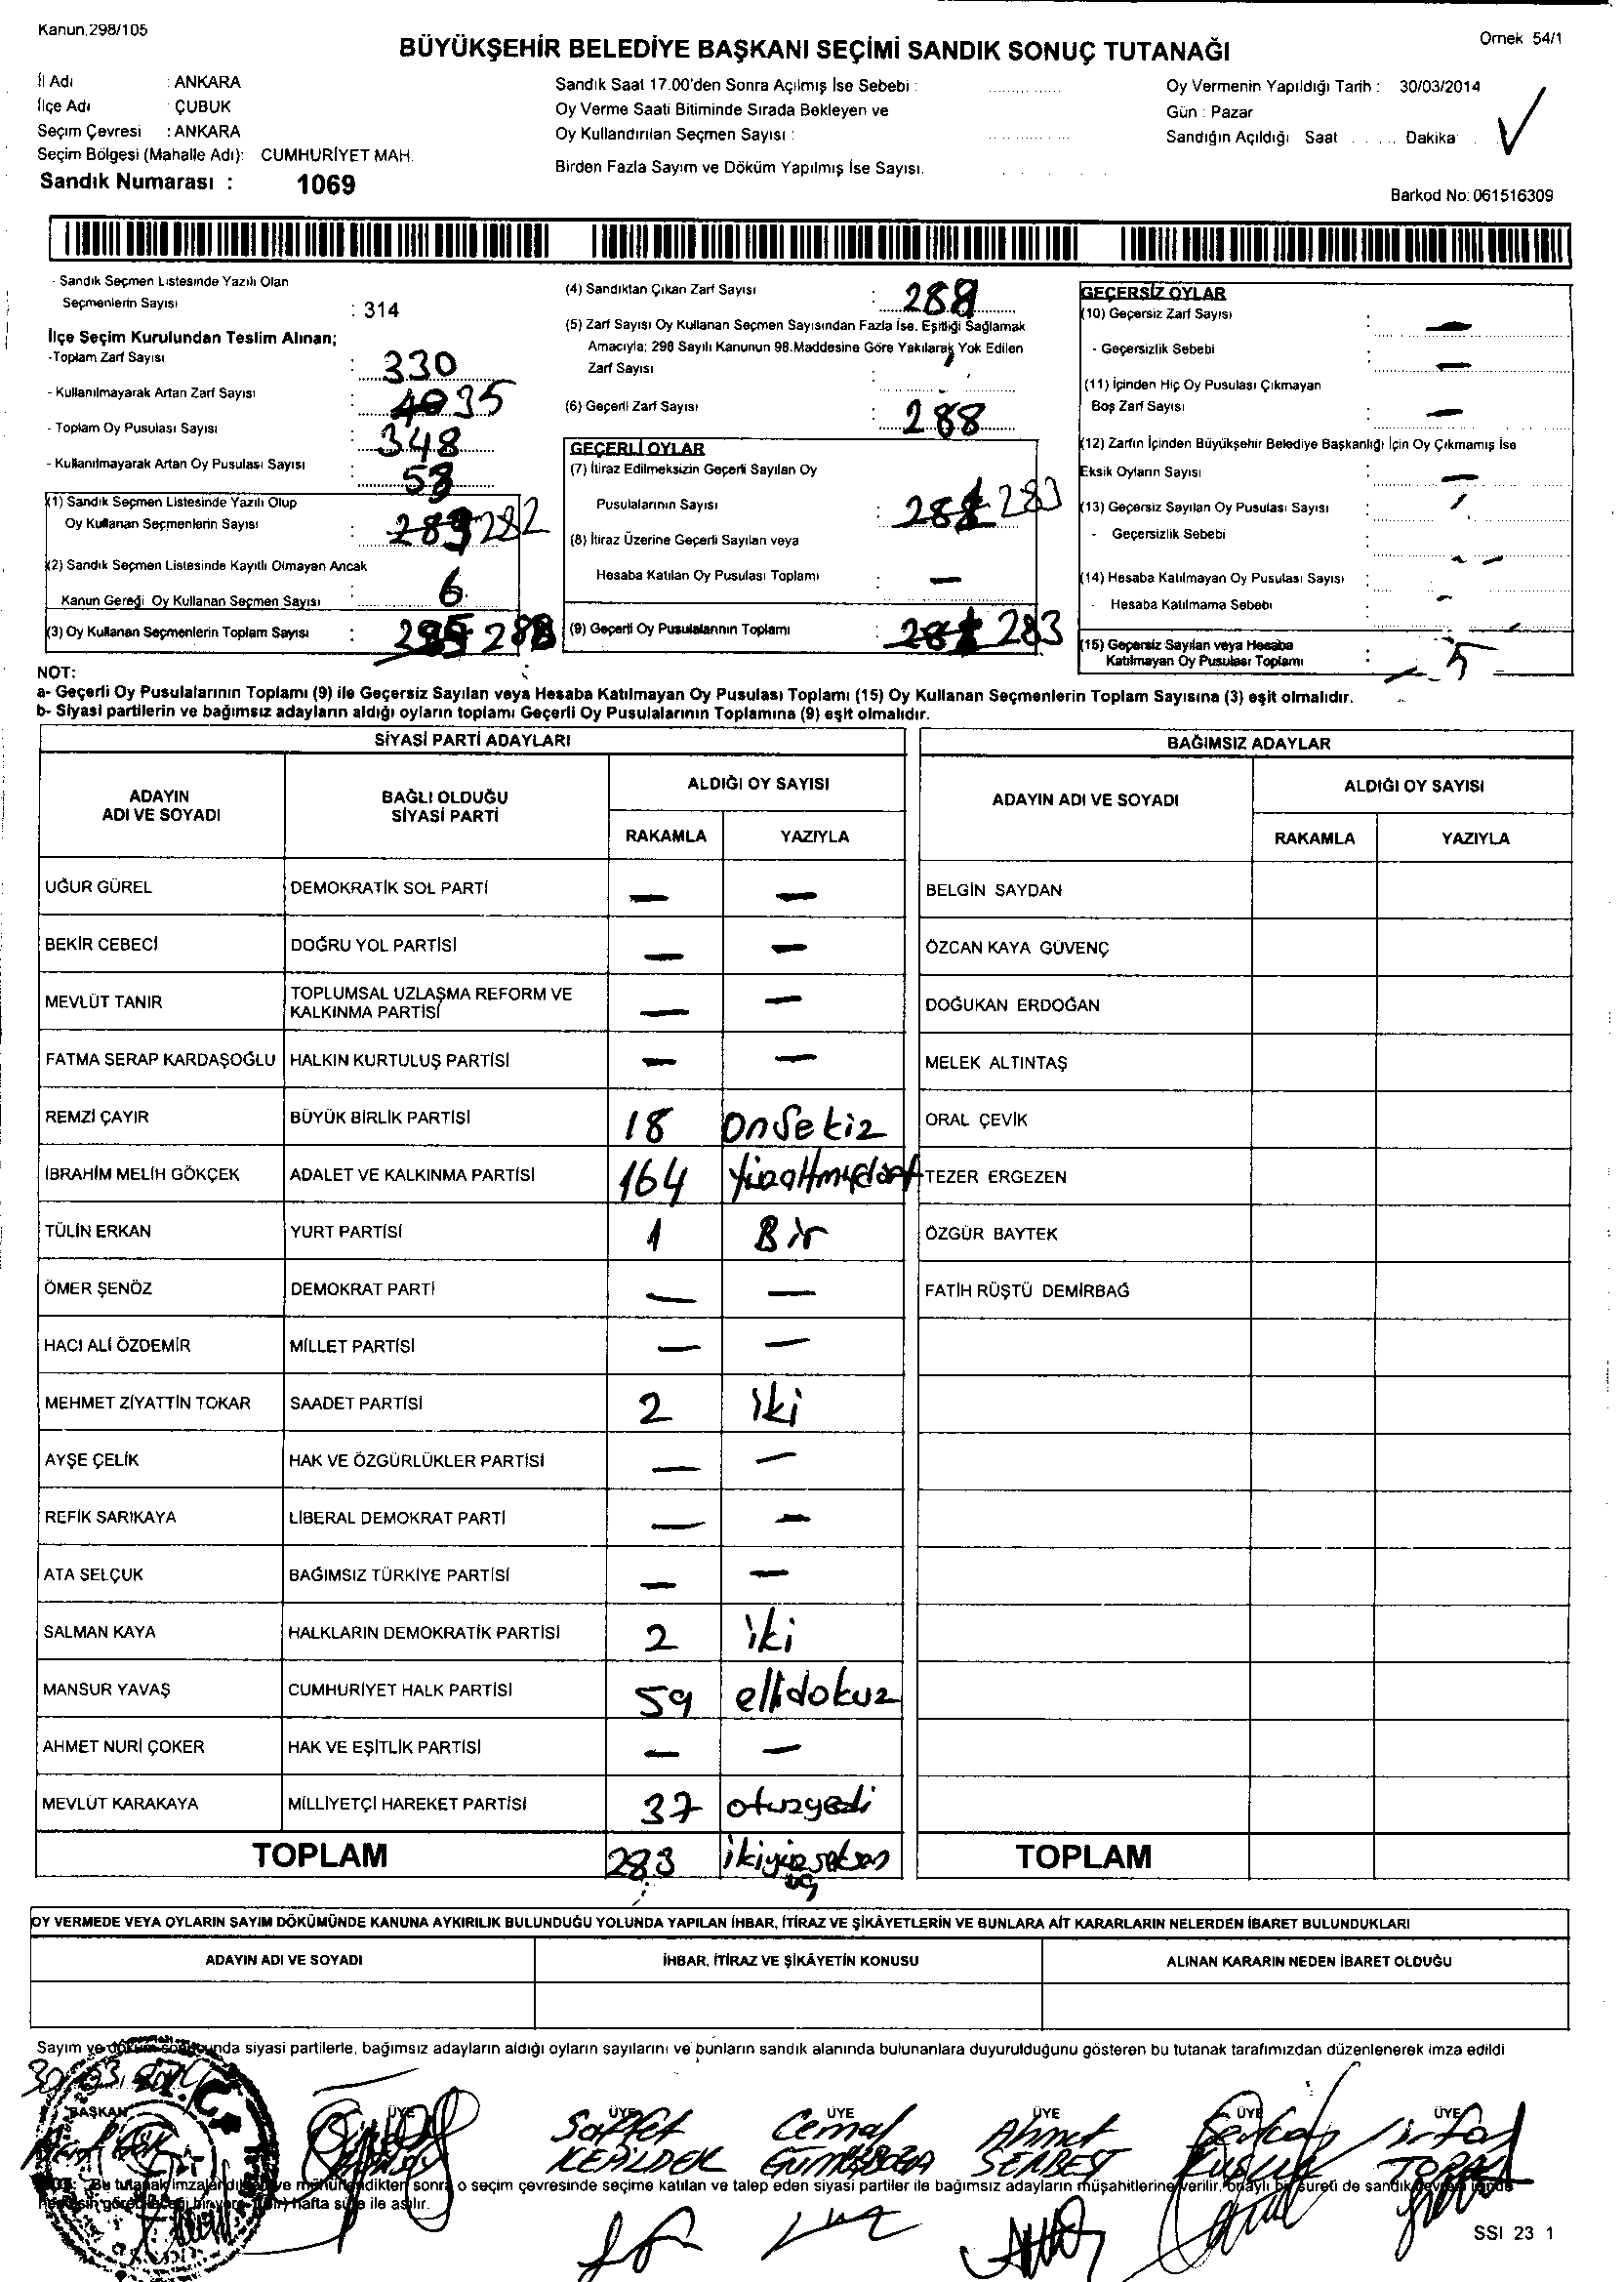 Kanun.298/105
Örnek 54/1
BÜYÜKŞEHİR BELEDİYE BAŞKANI SEÇİMİ SANDIK SONUÇ TUTANAĞI
İl Adı : ANKARA
İlçe Adı : ÇUBUK
Seçim Çevresi : ANKARA
Seçim Bölgesi (Mahalle Adı): CUMHURİYET MAH.
Sandık Numarası : 1069
Sandık Saat 17.00'den Sonra Açılmış İse Sebebi :
Oy Verme Saati Bitiminde Sırada Bekleyen ve
Oy Kullandırılan Seçmen Sayısı :
Birden Fazla Sayım ve Döküm Yapılmış İse Sayısı.
Oy Vermenin Yapıldığı Tarih : 30/03/2014
Gün : Pazar
Sandığın Açıldığı Saat ..... Dakika
Barkod No: 061516309
- Sandık Seçmen Listesinde Yazılı Olan
Seçmenlerin Sayısı : 314
İlçe Seçim Kurulundan Teslim Alınan;
-Toplam Zarf Sayısı : 330
- Kullanılmayarak Artan Zarf Sayısı : 40 35
- Toplam Oy Pusulası Sayısı : 348
- Kullanılmayarak Artan Oy Pusulası Sayısı :
(1) Sandık Seçmen Listesinde Yazılı Olup
Oy Kullanan Seçmenlerin Sayısı : 289 282
(2) Sandık Seçmen Listesinde Kayıtlı Olmayan Ancak
Kanun Gereği Oy Kullanan Seçmen Sayısı : 6
(3) Oy Kullanan Seçmenlerin Toplam Sayısı : 288
(4) Sandıktan Çıkan Zarf Sayısı : 288
(5) Zarf Sayısı Oy Kullanan Seçmen Sayısından Fazla İse. Eşitliği Sağlamak
Amacıyla; 298 Sayılı Kanunun 98.Maddesine Göre Yakılarak Yok Edilen
Zarf Sayısı :
(6) Geçerli Zarf Sayısı : 288
GEÇERLİ OYLAR
(7) İtiraz Edilmeksizin Geçerli Sayılan Oy
Pusulalarının Sayısı : 283
(8) İtiraz Üzerine Geçerli Sayılan veya
Hesaba Katılan Oy Pusulası Toplamı : —
(9) Geçerli Oy Pusulalarının Toplamı : 283
GEÇERSİZ OYLAR
(10) Geçersiz Zarf Sayısı : —
- Geçersizlik Sebebi : —
(11) İçinden Hiç Oy Pusulası Çıkmayan
Boş Zarf Sayısı : —
(12) Zarfın İçinden Büyükşehir Belediye Başkanlığı İçin Oy Çıkmamış İse
Eksik Oyların Sayısı : —
(13) Geçersiz Sayılan Oy Pusulası Sayısı :
- Geçersizlik Sebebi :
(14) Hesaba Katılmayan Oy Pusulası Sayısı :
- Hesaba Katılmama Sebebi :
(15) Geçersiz Sayılan veya Hesaba
Katılmayan Oy Pusulası Toplamı : 5
NOT:
a- Geçerli Oy Pusulalarının Toplamı (9) ile Geçersiz Sayılan veya Hesaba Katılmayan Oy Pusulası Toplamı (15) Oy Kullanan Seçmenlerin Toplam Sayısına (3) eşit olmalıdır.
b- Siyasi partilerin ve bağımsız adayların aldığı oyların toplamı Geçerli Oy Pusulalarının Toplamına (9) eşit olmalıdır.
SİYASİ PARTİ ADAYLARI
ADAYIN ADI VE SOYADI
BAĞLI OLDUĞU SİYASİ PARTİ
ALDIĞI OY SAYISI
RAKAMLA YAZIYLA
UĞUR GÜREL DEMOKRATİK SOL PARTİ — —
BEKİR CEBECİ DOĞRU YOL PARTİSİ — —
MEVLÜT TANIR TOPLUMSAL UZLAŞMA REFORM VE KALKINMA PARTİSİ — —
FATMA SERAP KARDAŞOĞLU HALKIN KURTULUŞ PARTİSİ — —
REMZİ ÇAYIR BÜYÜK BİRLİK PARTİSİ 18 onsekiz
İBRAHİM MELİH GÖKÇEK ADALET VE KALKINMA PARTİSİ 164 yüzaltmışdört
TÜLİN ERKAN YURT PARTİSİ 1 Bir
ÖMER ŞENÖZ DEMOKRAT PARTİ — —
HACI ALİ ÖZDEMİR MİLLET PARTİSİ — —
MEHMET ZİYATTİN TOKAR SAADET PARTİSİ 2 iki
AYŞE ÇELİK HAK VE ÖZGÜRLÜKLER PARTİSİ — —
REFİK SARIKAYA LİBERAL DEMOKRAT PARTİ — —
ATA SELÇUK BAĞIMSIZ TÜRKİYE PARTİSİ — —
SALMAN KAYA HALKLARIN DEMOKRATİK PARTİSİ 2 iki
MANSUR YAVAŞ CUMHURİYET HALK PARTİSİ 59 ellidokuz
AHMET NURİ ÇOKER HAK VE EŞİTLİK PARTİSİ — —
MEVLÜT KARAKAYA MİLLİYETÇİ HAREKET PARTİSİ 37 otuzyedi
TOPLAM 283 ikiyüzseksen üç
BAĞIMSIZ ADAYLAR
ADAYIN ADI VE SOYADI
ALDIĞI OY SAYISI
RAKAMLA YAZIYLA
BELGİN SAYDAN
ÖZCAN KAYA GÜVENÇ
DOĞUKAN ERDOĞAN
MELEK ALTINTAŞ
ORAL ÇEVİK
TEZER ERGEZEN
ÖZGÜR BAYTEK
FATİH RÜŞTÜ DEMİRBAĞ
TOPLAM
OY VERMEDE VEYA OYLARIN SAYIM DÖKÜMÜNDE KANUNA AYKIRILIK BULUNDUĞU YOLUNDA YAPILAN İHBAR, İTİRAZ VE ŞİKÂYETLERİN VE BUNLARA AİT KARARLARIN NELERDEN İBARET BULUNDUKLARI
ADAYIN ADI VE SOYADI
İHBAR, İTİRAZ VE ŞİKÂYETİN KONUSU
ALINAN KARARIN NEDEN İBARET OLDUĞU
Sayım ve döküm sonucunda siyasi partilerle, bağımsız adayların aldığı oyların sayılarını ve bunların sandık alanında bulunanlara duyurulduğunu gösteren bu tutanak tarafımızdan düzenlenerek imza edildi
30/03/2014
BAŞKAN ÜYE ÜYE ÜYE ÜYE ÜYE ÜYE
Saffet Cemal Ahmet Serkan
sonra o seçim çevresinde seçime katılan ve talep eden siyasi partiler ile bağımsız adayların müşahitlerine verilir, onaylı bir sureti de sandık
hafta süre ile asılır.
SSI 23 1